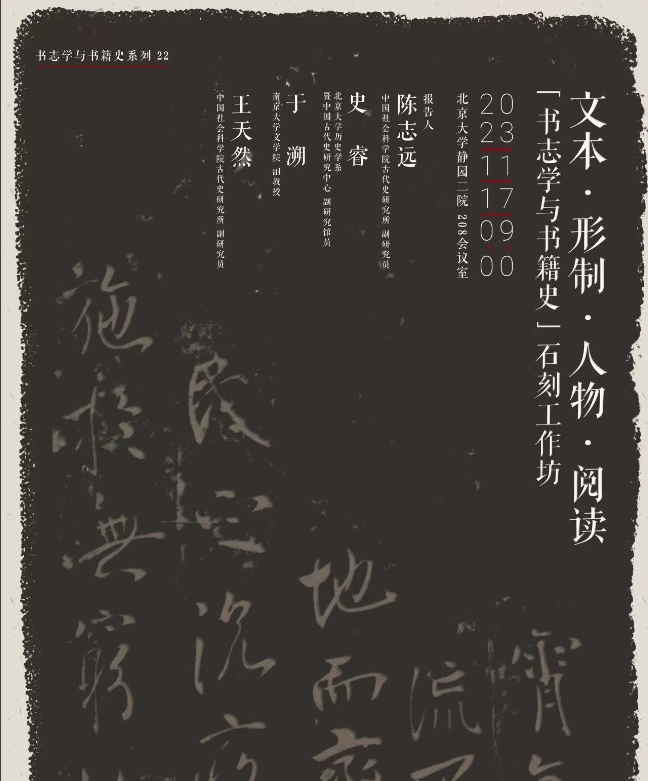 书志学与书籍史系列 22
文本·形制·人物·阅读
「书志学与书籍史」石刻工作坊
20
23
11
17
09
00
北京大学静园二院 208会议室
报告人
陈志远
中国社会科学院古代史研究所 副研究员
史睿
北京大学历史学系
暨中国古代史研究中心 副研究馆员
于溯
南京大学文学院 副教授
王天然
中国社会科学院古代史研究所 副研究员
霄
流
地而
民 沉
施 無窮